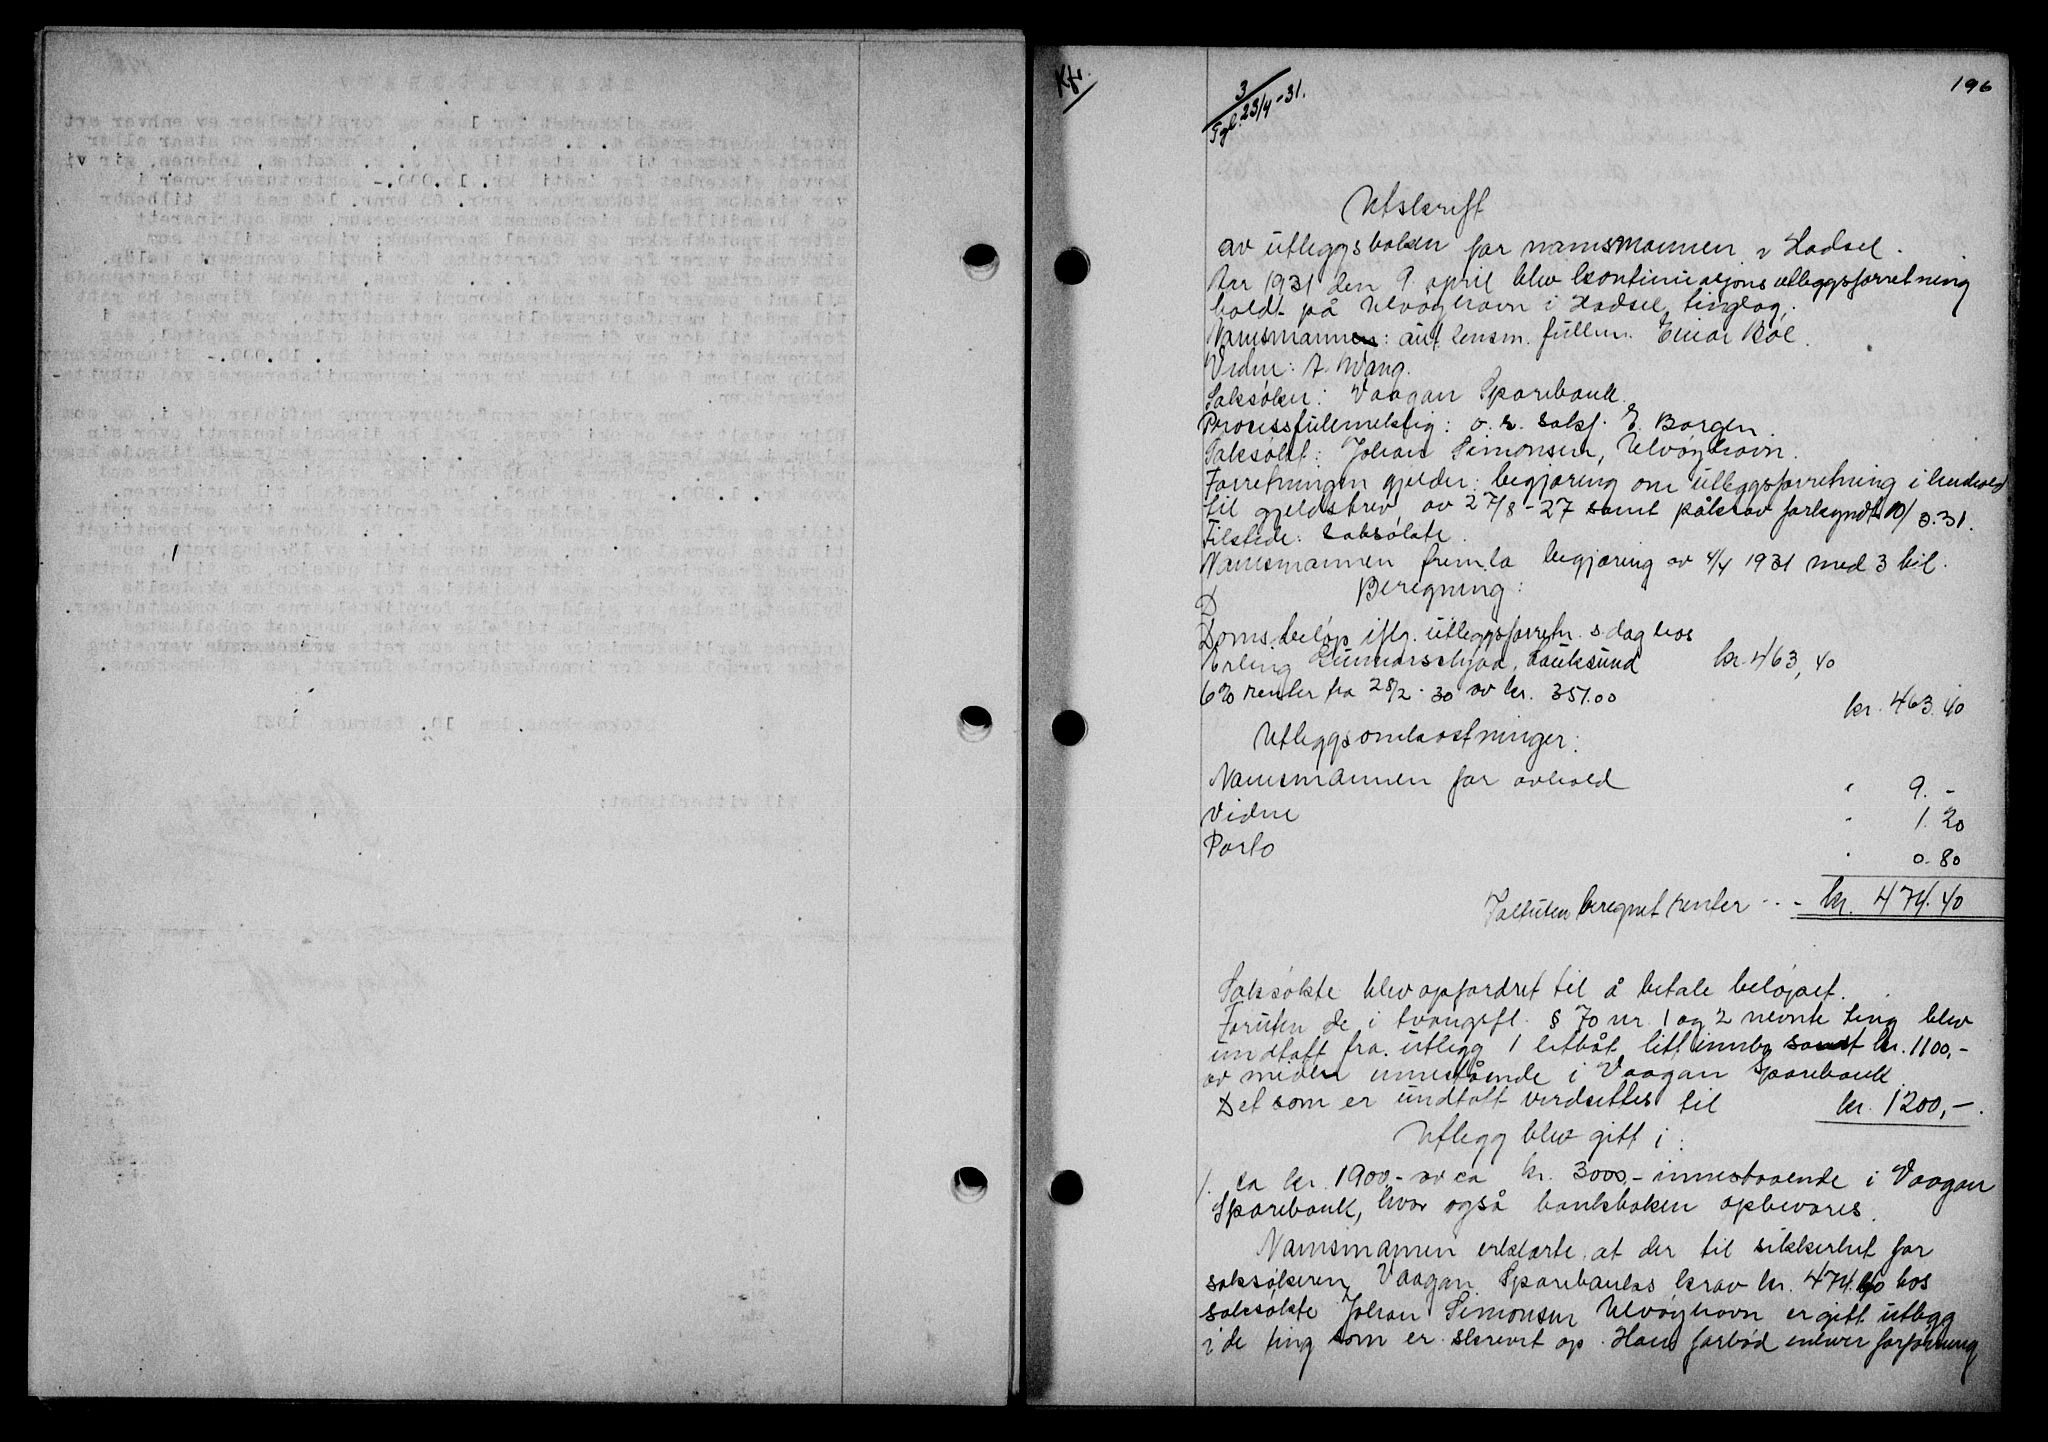 Kfr.
3
Tgl. 23/4-31.
196
Utskrift
av utleggsboken for namsmannen i Hadsel.
Aar 1931 den 9. april blev kontinuasjons utleggsforretning
holdt på Ulvøyhavn i Hadsel tinglag.
Namsmannen: aut. lensm. fullm. Einar Bøe.
Vidne: A. Wang.
Saksøker: Vaagan Sparebank.
Processfullmektig: o.r. sakf. E. Borgen.
Saksøkt: Johan Simonsen, Ulvøyhavn.
Forretningen gjelder: begjæring om utleggsforretning i henhold
til gjeldsbrev av 27/8-27 samt påkrav forkyndt 10/3.31.
Tilstede: saksøkte.
Namsmannen fremla begjæring av 4/4 1931 med 3 bil.
Beregning:
Domsbeløp iflg. utleggsforretn. s dag hos
Erling Gunnarschjaa, Hauksund kr. 463,40
6% renter fra 28/2-30 av kr. 351.00
kr. 463.40
Utleggsomkostninger:
Namsmannen for avhold " 9.-
Vidne " 1.20
Porto " 0.80
Foruten beregnet renter - - - kr. 474.40
Saksøkte blev opfordret til å betale beløpet.
Foruten de i tvangsfl. § 70 nr. 1 og 2 nevnte ting blev
undtatt fra utlegg 1 litbåt, litt innbo samt kr. 1100,-
av midler innestående i Vaagan Sparebank.
Det som er undtatt verdsettes til kr. 1200,-.
Utlegg blev gitt i:
1. ca kr. 1900,- av ca kr. 3000,- innestaaende i Vaagan
Sparebank, hvor også bankboken opbevares.
Namsmannen erklærte at der til sikkerhet for
saksøkeren Vaagan Sparebanks krav kr. 474.40 hos
saksøkte Johan Simonsen Ulvøyhavn er gitt utlegg
i de ting som er skrevet op. Han forbød enhver forføining